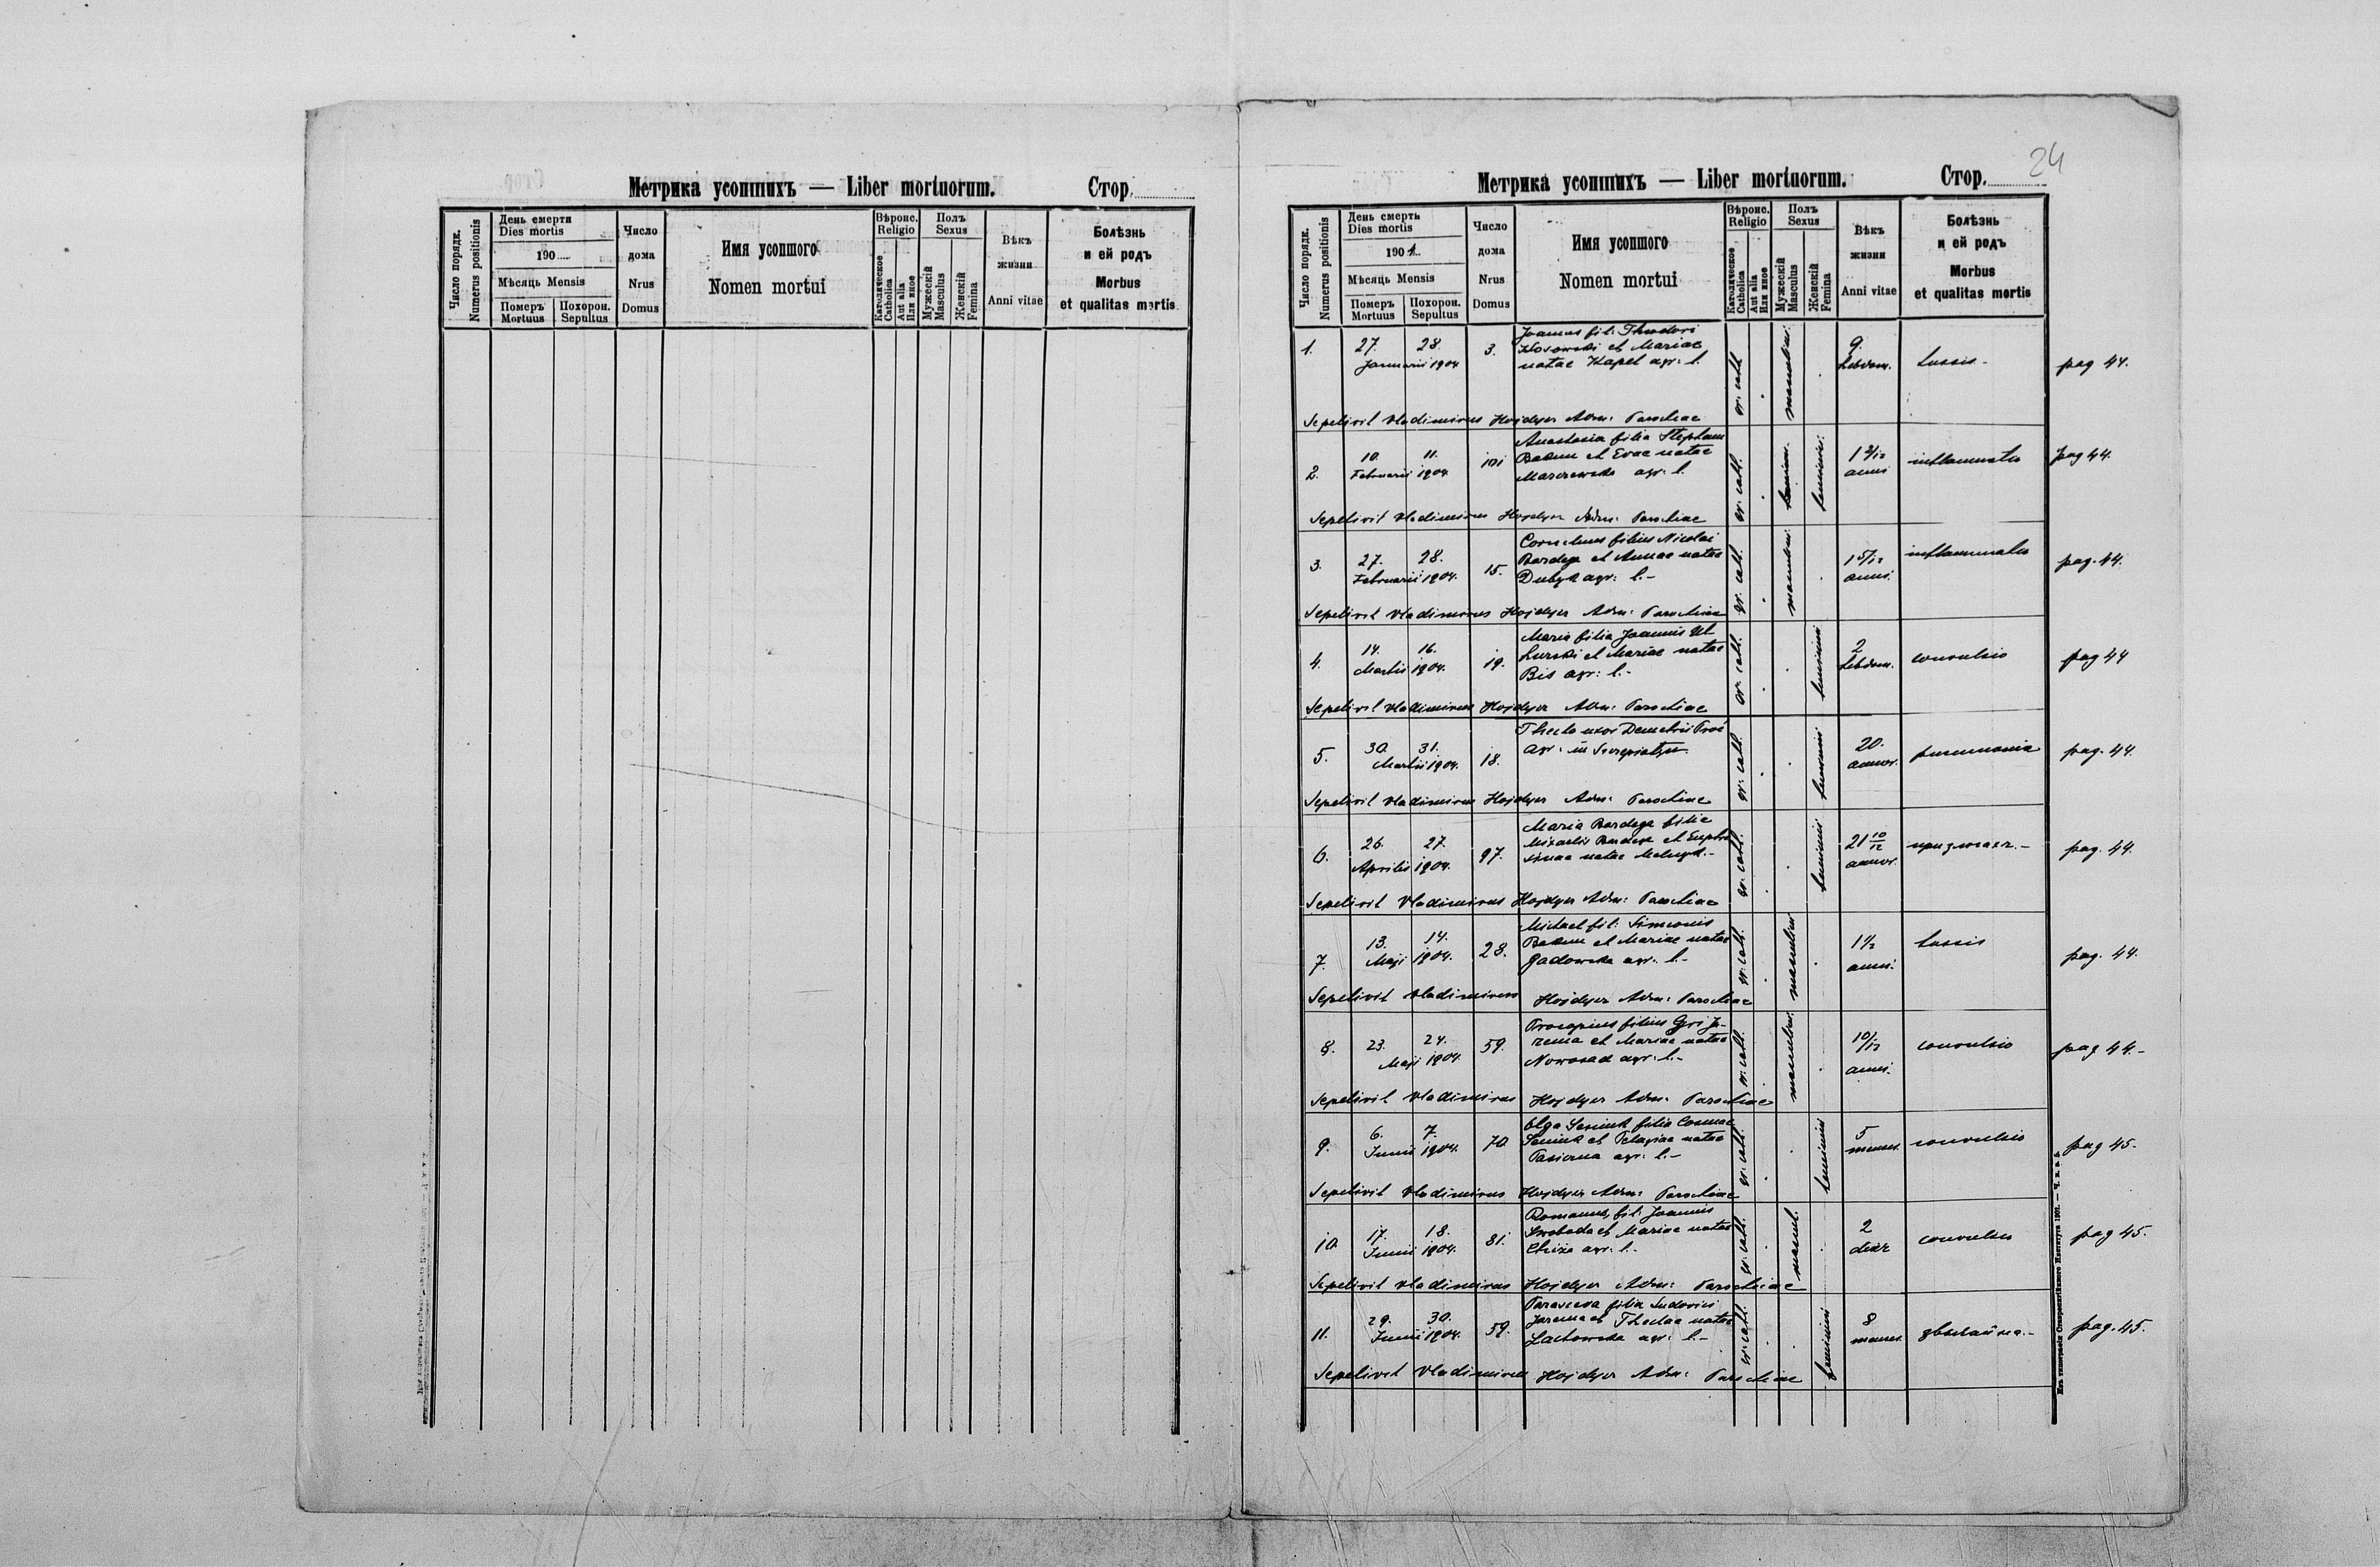 Метрика усопшихъ — Liber mortuorum. Стор.
Число порядк.
Numerus positionis
День смерти
Dies mortis
190
Мѣсяць Mensis
Померъ
Mortuus
Похорон.
Sepultus
Число
дома
Nrus
Domus
Имя усопшого
Nomen mortui
Вѣроис.
Religio
Католическое
Catholica
Aut alia
Или иное
Полъ
Sexus
Мужескій
Masculus
Женскій
Femina
Вѣкъ
жизни
Anni vitae
Болѣзнь
и ей родъ
Morbus
et qualitas mortis
24
Метрика усопшихъ — Liber mortuorum. Стор.
Число порядк.
Numerus positionis
День смерть
Dies mortis
1904.
Мѣсяць Mensis
Померъ
Mortuus
Похорон.
Sepultus
Число
дома
Nrus
Domus
Имя усопшого
Nomen mortui
Вѣроис.
Religio
Католическое
Catholica
Aut alia
Или иное
Полъ
Sexus
Мужескій
Masculus
Женскій
Femina
Вѣкъ
жизни
Anni vitae
Болѣзнь
и ей родъ
Morbus
et qualitas mortis
1. 27. 28. Januarii 1904 3.
Joannes fil: Theodori
et Mariae
natae agr: l.
gr. cath. 9. hebdom. tussis - pag 44.
Sepelivit Vladimirus Hojdyer Adm: Parochiae
2. 10. 11. Februarii 1904 101
Anastasia filia Stephani
et Evae natae
agr: l.
gr. cath. feminini 1 2/12 anni inflammatio pag 44.
Sepelivit Vladimirus Hojdyer Adm: Parochiae
3. 27. 28. Februarii 1904. 15.
Cornelius filius Nicolai
Bardega et Annae natae
Dubyk agr: l.-
gr. cath. 1 5/12 anni. inflammatio pag. 44.
Sepelivit Vladimirus Hojdyer Adm: Parochiae
4. 14. 16. Martii 1904. 19.
Maria filia Joannis
et Mariae natae
Bis agr: l.-
gr. cath. feminini 2 hebdom. convulsio pag 44
Sepelivit Vladimirus Hojdyer Adm: Parochiae
5. 30. 31. Martii 1904. 18.
Thecla uxor Demetrii
agr: in
gr. cath. feminini 20. annor. pneumonia pag. 44
Sepelivit Vladimirus Hojdyer Adm: Parochiae
6. 26. 27. Aprilis 1904. 97.
Maria Bardega filia
Michaelis Bardega et Euphro
sinae natae
gr. cath. feminini 21 10/12 annor. pag. 44.
Sepelivit Vladimirus Hojdyer Adm: Parochiae
7. 13. 14. Maji 1904. 28.
Michael fil: Simeonis
et Mariae natae
Gadowska agr: l.-
gr. cath. masculini 1 1/2 anni. tussis pag. 44.
Sepelivit Vladimirus Hojdyer Adm: Parochiae
8. 23. 24. Maji 1904. 59.
Procopius filius Gr: Ja-
rema et Mariae natae
Nowosad agr: l.-
gr. cath. masculini 10/12 anni. convulsio pag 44.-
Sepelivit Vladimirus Hojdyer Adm: Parochiae
9. 6. 7. Junii 1904. 70.
Olga Seniuk filia Cosmae
Seniuk et Pelagiae natae
agr: l.-
gr. cath. feminini 5 menses. convulsio pag 45.
Sepelivit Vladimirus Hojdyer Adm: Parochiae
10. 17. 18. Junii 1904. 81.
Romanus, fil: Joannis
Swoboda et Mariae natae
agr: l.-
gr. cath. mascul. 2 convulsio pag 45.
Sepelivit Vladimirus Hojdyer Adm: Parochiae
11. 29. 30. Junii 1904. 59.
Parasceva filia Ludovici
Jarema et Theclae natae
Lachowska agr: l.-
gr. cath. feminini 8 menses. звычайна.- pag. 45.
Sepelivit Vladimirus Hojdyer Adm: Parochiae